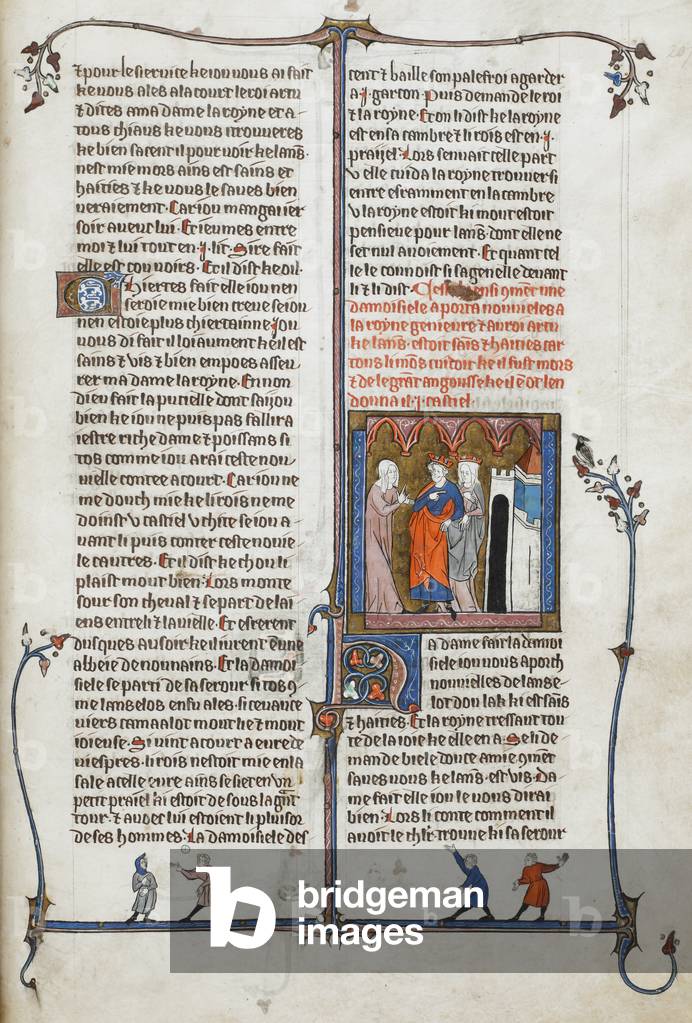 ⁊ pour le seruice ke iou uous ai fait
ke uous ales a la court le roi artu
⁊ dites a ma dame la royne et a
tous chiaus ke uous i trouueres
ke bien sacent il pour uoir ke lans.
nest mie mors ains est sains et
haities ⁊ ke uous le saues bien
ueraiement. Car iou mangai er
soir auoec lui. Et ieumes entre
moi ⁊ lui tout en .i. lit. Sire fait
elle est cou uoirs. Et il dist ke oil.
Chiertes fait elle iou nen
seroie mie bien creue se iou
nen estoie plus chiertainne. Jou
uous di fait il loiaument ke il est
sains ⁊ uis ⁊ bien empoes asseu
rer ma dame la royne. En non
dieu fait la pucielle dont sai iou
bien ke iou ne puis pas fallir a
iestre riche dame ⁊ poissans si
tos comme iou arai ceste nou
uielle contee a court. Car iou ne
me douch mie ke li rois ne me
doinst u castiel u chite se iou a
uant li puis conter ceste nouie
le cautres. Et il dist ke chou li
plaist mout bien. Lors monte
sour son cheual ⁊ se part de lai
ens entre li ⁊ la uielle. Et esrerent
dusques au soir ke il iurent a une
abbeie de nounains. Et la damoi
siele se parti de sa serour si tos 9
me lanselos en fu ales. si ceuauce
uiers camaalot mout he ⁊ mout
ioieuse. Si uint a court a eure de
uiespres. li rois nestoit mie en la
sale a celle eure ains se siet en un
petit praiel ki estoit de sous la gnt
tour. ⁊ auoec lui estoient li pluisor
de ses hommes. La damoisiele des
cent ⁊ baille son palefroi a garder
a .i. garcon. Puis demande le roi
⁊ la royne. Et on li dist ke la royne
est en sa cambre ⁊ li rois est en .i.
praiiel. Lors sen uait celle part
u elle cuida la royne trouuer si
entre esramment en la cambre
u la royne estoit ki mout estoit
pensieue pour lans. dont elle ne
set nul auoiement. Et quant cel
le le connoist si sagenelle deuant
li ⁊ li dist. Ensi 9ment une
damoisiele aporta nouuieles a
la royne genieure ⁊ au roi artu
ke lans. estoit sains ⁊ haities car
tous li mons cuidoit ke il fust mors
⁊ de le grant angousse ke il en ot len
donna il .i. castiel.
Ma dame fait la damoi
siele iou uous aporch
nouuieles de lanse
lot dou lak ki est sains
⁊ haities. Et la royne tressaut tou
te de la ioie ke elle en a. Se li de
mande biele douce amie 9ment
saues uous ke lans. est uis. Da
me fait elle iou le uous dirai
bien. Lors li conte comment il
auoit le chlr trouue ki sa serour
b bridgeman
images